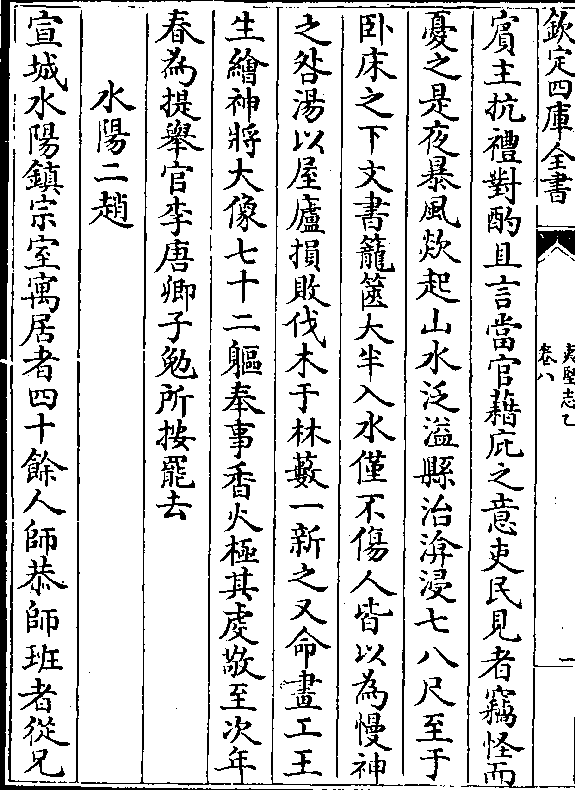 欽定四庫全書
夷堅志乙
卷八
一
賔主抗禮對酌且言當官藉庇之意吏民見者竊怪而
憂之是夜暴風欻起山水泛溢縣治渰浸七八尺至于
卧床之下文書籠箧大半入水僅不傷人皆以為慢神
之咎湯以屋廬損敗伐木于林藪一新之又命畫工王
生繪神將大像七十二軀奉事香火極其虔敬至次年
春為提舉官李唐卿子勉所按罷去
水陽二趙
宣城水陽鎮宗室寓居者四十餘人師恭師班者從兄